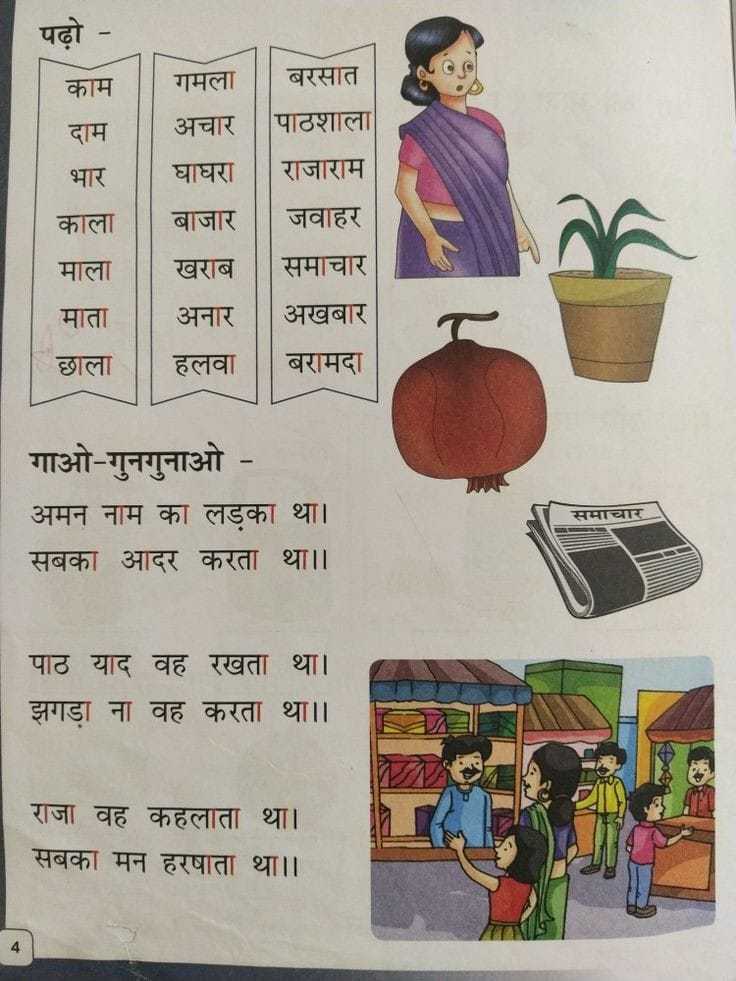 पढ़ो -
काम
दाम
भार
काला
माला
माता
छाला
गमला
अचार
घाघरा
बाजार
खराब
अनार
हलवा
बरसात
पाठशाला
राजाराम
जवाहर
समाचार
अखबार
बरामदा
गाओ-गुनगुनाओ -
अमन नाम का लड़का था।
सबका आदर करता था।।
समाचार
पाठ याद वह रखता था।
झगड़ा ना वह करता था।।
राजा वह कहलाता था।
सबका मन हरषाता था।।
4